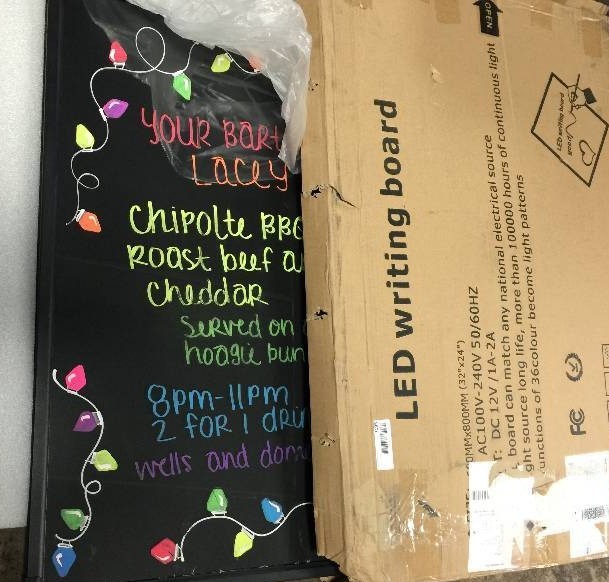 YOUR BART
LACEY
ChiPOLTE BBQ
ROAST beef a
Cheddar
SERVED ON
hoagie bun
8pm-11pm
2 FOR 1 dri
wells and dom
LED writing board
800MM (32"x24")
AC100V-240V 50/60HZ
DC 12V / 1A-2A
board can match any national electrical source
ght source long life, more than 100000 hours of continuous light
unctions of 36colour become light patterns
OPEN
LED writing board
good
FC